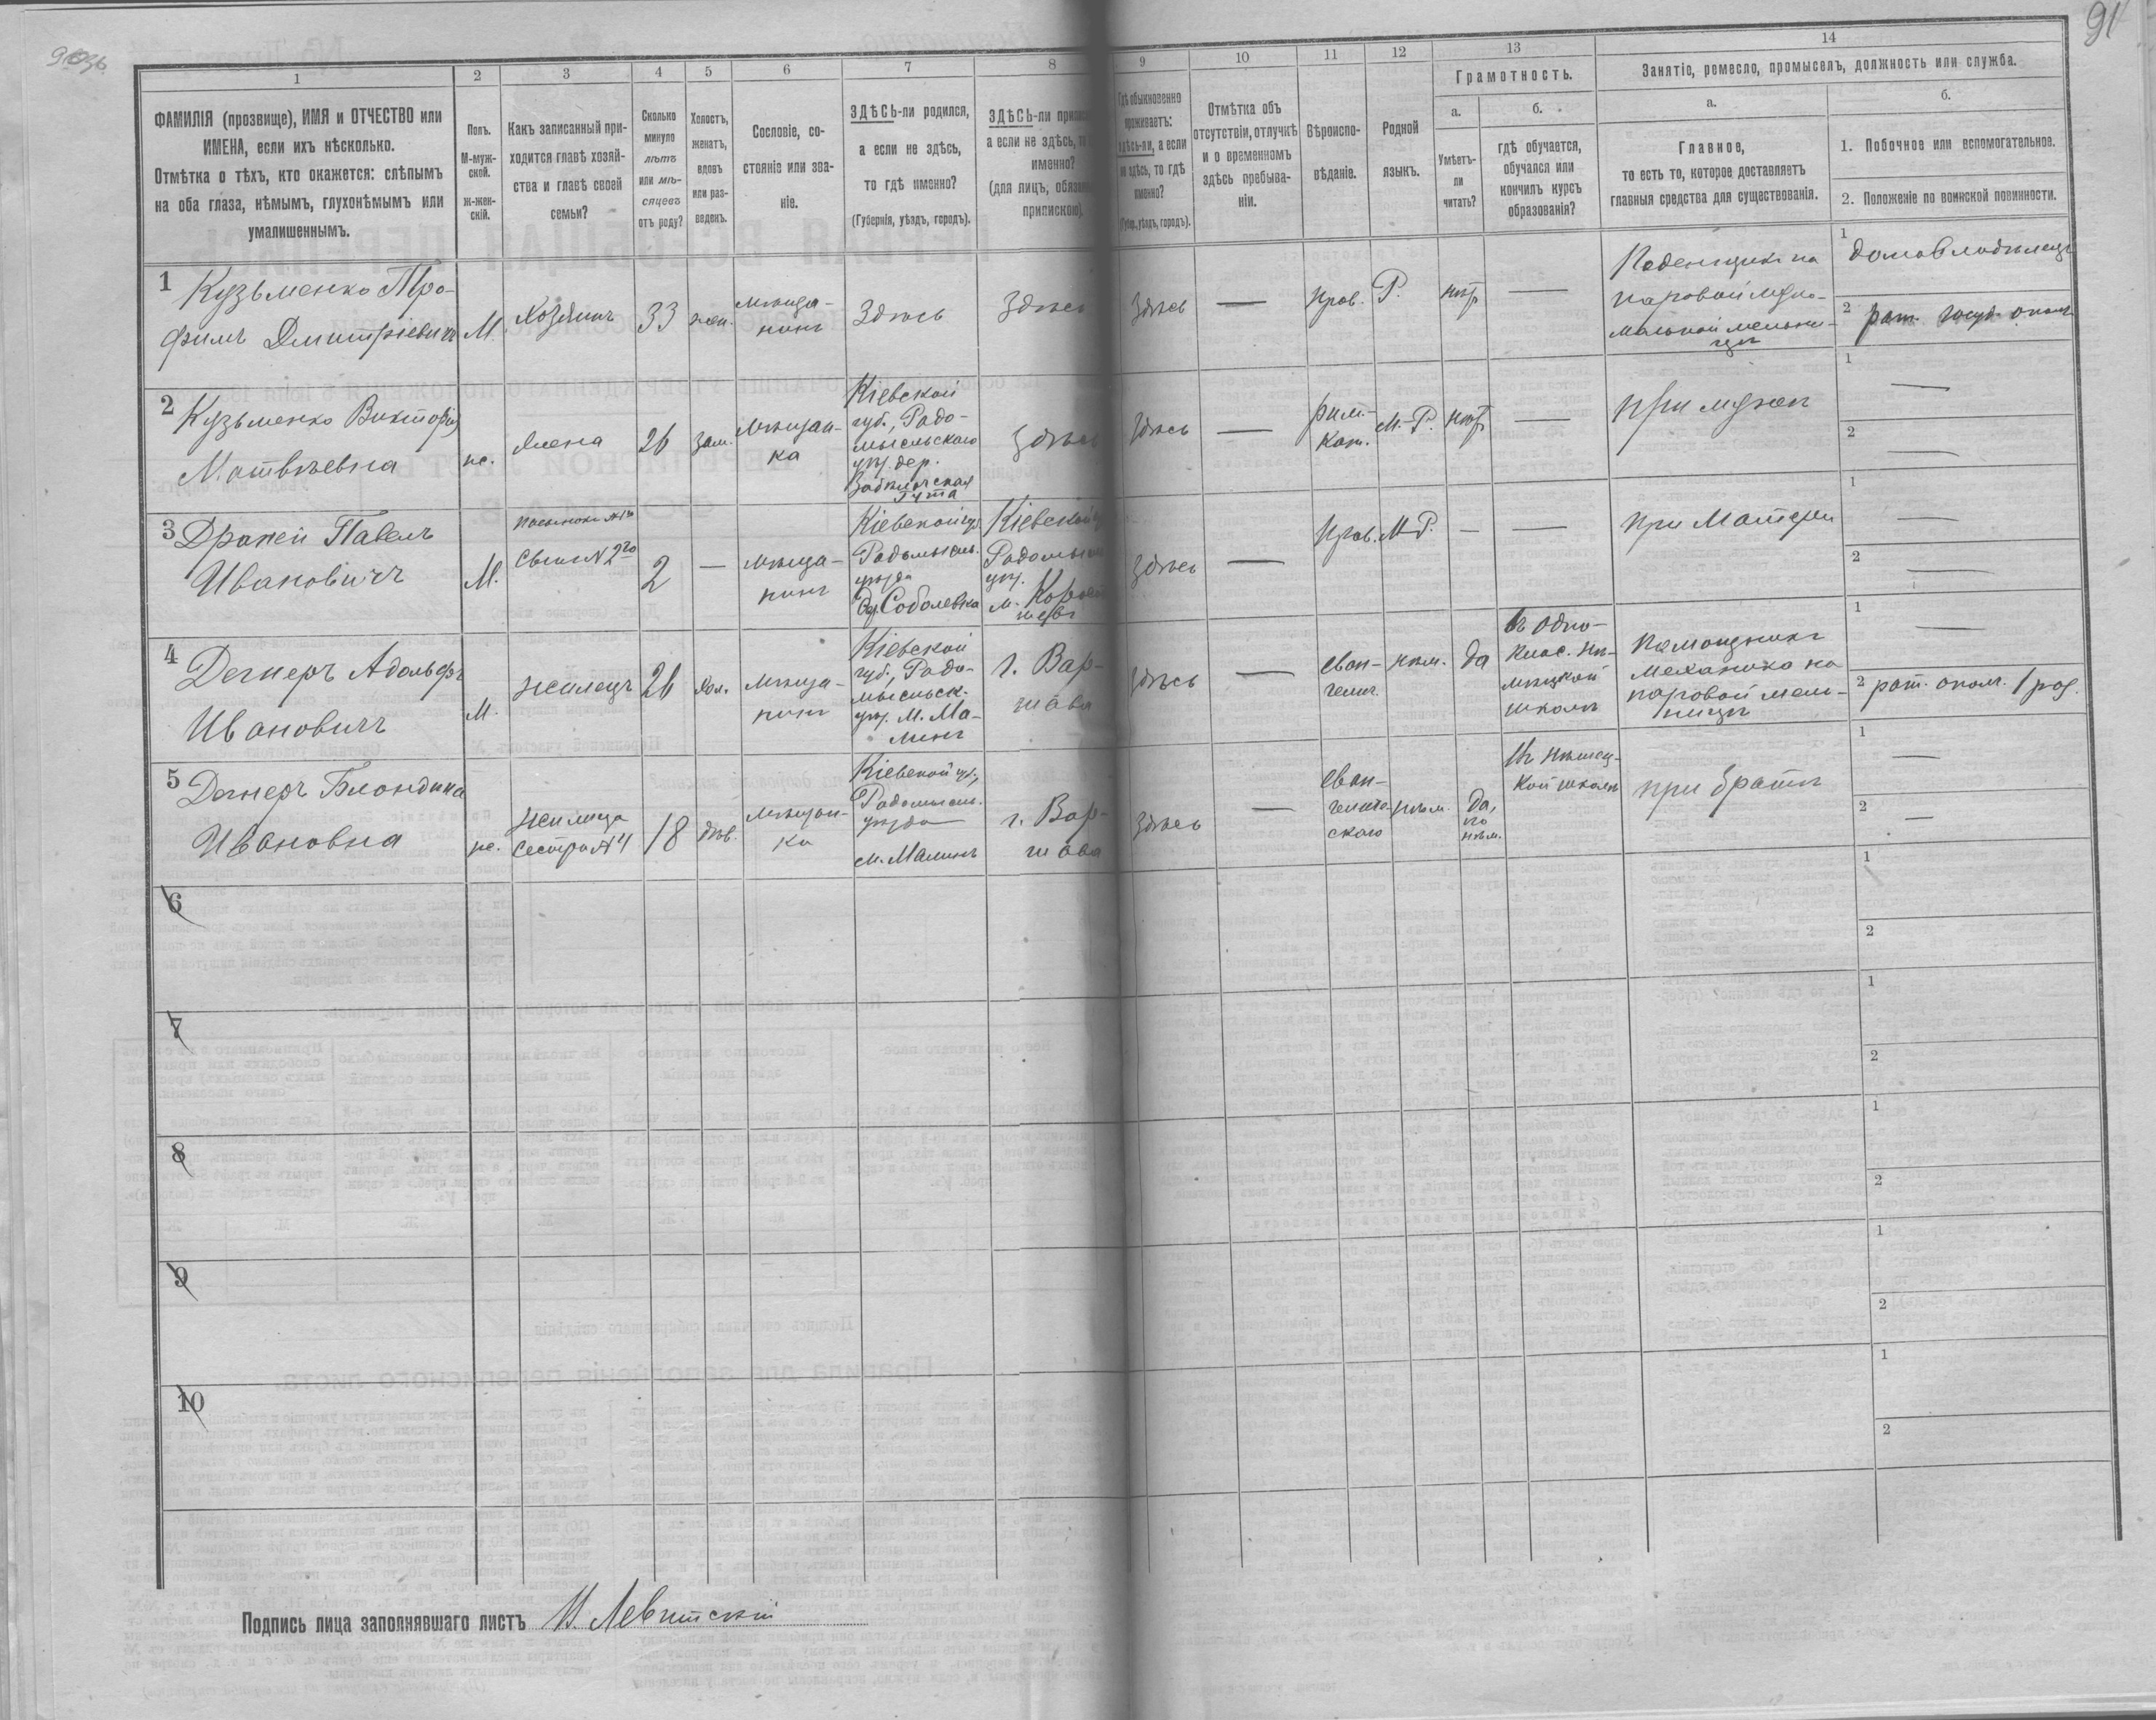 91
1
2
3
4
5
6
7
8
9
10
11
12
13
14
ФАМИЛІЯ (прозвище), ИМЯ и ОТЧЕСТВО или
ИМЕНА, если ихъ нѣсколько.
Отмѣтка о тѣхъ, кто окажется: слѣпымъ
на оба глаза, нѣмымъ, глухонѣмымъ или
умалишеннымъ.
Полъ.
М-муж-
ской.
ж-жен-
скій.
Какъ записанный при-
ходится главѣ хозяй-
ства и главѣ своей
семьи?
Сколько
минуло
лѣтъ
или мѣ-
сяцевъ
отъ роду?
Холостъ,
женатъ,
вдовъ
или раз-
веденъ.
Сословіе, со-
стояніе или зва-
ніе.
ЗДѢСЬ-ли родился,
а если не здѣсь,
то гдѣ именно?
(Губернія, уѣздъ, городъ).
ЗДѢСЬ-ли
а если не здѣсь,
именно?
(для лицъ,
припискою)
Гдѣ обыкновенно
проживаетъ:
здѣсь-ли, а если
не здѣсь, то гдѣ
именно?
(Губер., уѣздъ, городъ).
Отмѣтка объ
отсутствіи, отлучкѣ
и о временномъ
здѣсь пребыва-
ніи.
Вѣроиспо-
вѣданіе.
Родной
языкъ.
Грамотность.
а.
Умѣетъ-
ли
читать?
б.
гдѣ обучается,
обучался или
кончилъ курсъ
образованія?
Занятіе, ремесло, промыселъ, должность или служба.
а.
Главное,
то есть то, которое доставляетъ
главныя средства для существованія.
б.
1. Побочное или вспомогательное.
2. Положеніе по воинской повинности.
1
Кузьменко Тро-
фимъ Дмитріевичъ
М.
Хозяинъ
33
жен.
мѣща-
нинъ
Здѣсь
Здѣсь
Здѣсь
—
прав.
Р.
нѣт
—
Поденщикъ на
паровой муко-
мольной мельни-
цѣ
1
домовладѣлецъ
2
рат. госуд. ополч.
2
Кузьменко Викторія
Матвѣевна
ж.
Жена
26
зам.
Мѣщан-
ка
Кіевской
губ., Радо-
мысльскаго
уѣз. дер.
Гута
Здѣсь
Здѣсь
—
рим.-
кат.
М.-Р.
нѣт
—
при мужѣ
1
—
2
—
3
Павелъ
Ивановичъ
М.
Сынъ №2го
2
—
мѣща-
нинъ
Кіевской губ.
Радомысль.
уѣзда
Соболевка
Кіевской
Радомысл
уѣз.
м.
Здѣсь
—
Прав.
М-Р.
—
—
при Матери
1
—
2
—
4
Дегнеръ Адольфъ
Ивановичъ
М.
жилецъ
26
Хол.
Мѣща-
нинъ
Кіевской
губ., Радо-
мысльск.
уѣз. М. Ма-
линѣ
г. Вар-
шава
Здѣсь
—
еван-
гелич.
нѣм.
да
въ одно-
клас. нѣ-
мецкой
школѣ
Помощникъ
механика на
паровой мель-
ницѣ
1
—
2
рат. ополч. 1 раз.
5
Дегнеръ Блондина
Ивановна
ж.
жилица
Сестра №4
18
дѣв.
Мѣщан-
ка
Кіевской губ.,
Радомысль.
уѣзда
м. Малинъ
г. Вар-
шава
Здѣсь
—
еван-
геличе-
скаго
нѣм.
да,
по
нѣм.
Въ нѣмец-
кой школѣ
при братѣ
1
—
2
—
6
1
2
7
1
2
8
1
2
9
1
2
10
1
2
Подпись лица заполнявшаго листъ
Левитскій